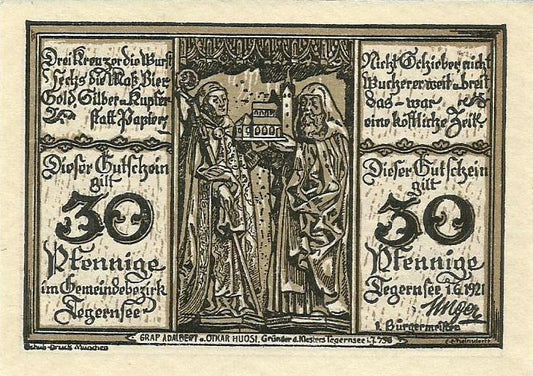 Drei Kreuzer die Wurst
Sechs die Maß Bier
Gold Silber u. Kupfer
statt Papier
Dieser Gutschein
gilt
30
Pfennige
im Gemeindebezirk
Tegernsee
Nicht Schieber nicht
Wucherer weit u. breit
das - war
eine köstliche Zeit.
Dieser Gutschein
gilt
30
Pfennige
Tegernsee 1.6.1921
1. Bürgermeister
GRAF ADALBERT u. OTKAR HUOSI, Gründer d. Klosters Tegernsee i. J. 756
Druck München